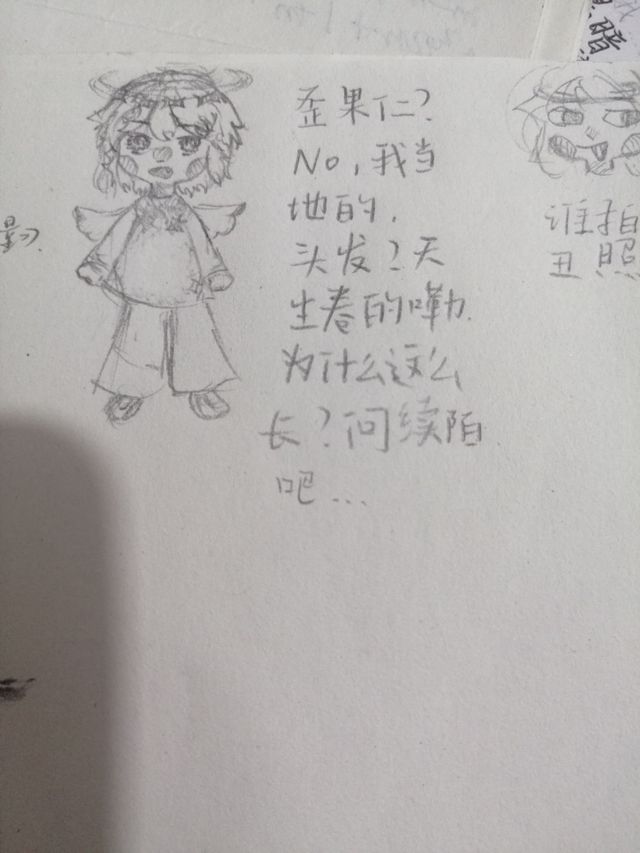 歪果仁?
No,我当
地的,
头发?天
生春的嘞.
为什么这么
长?问续陌
吧...
谁拍
丑照
影).
暗